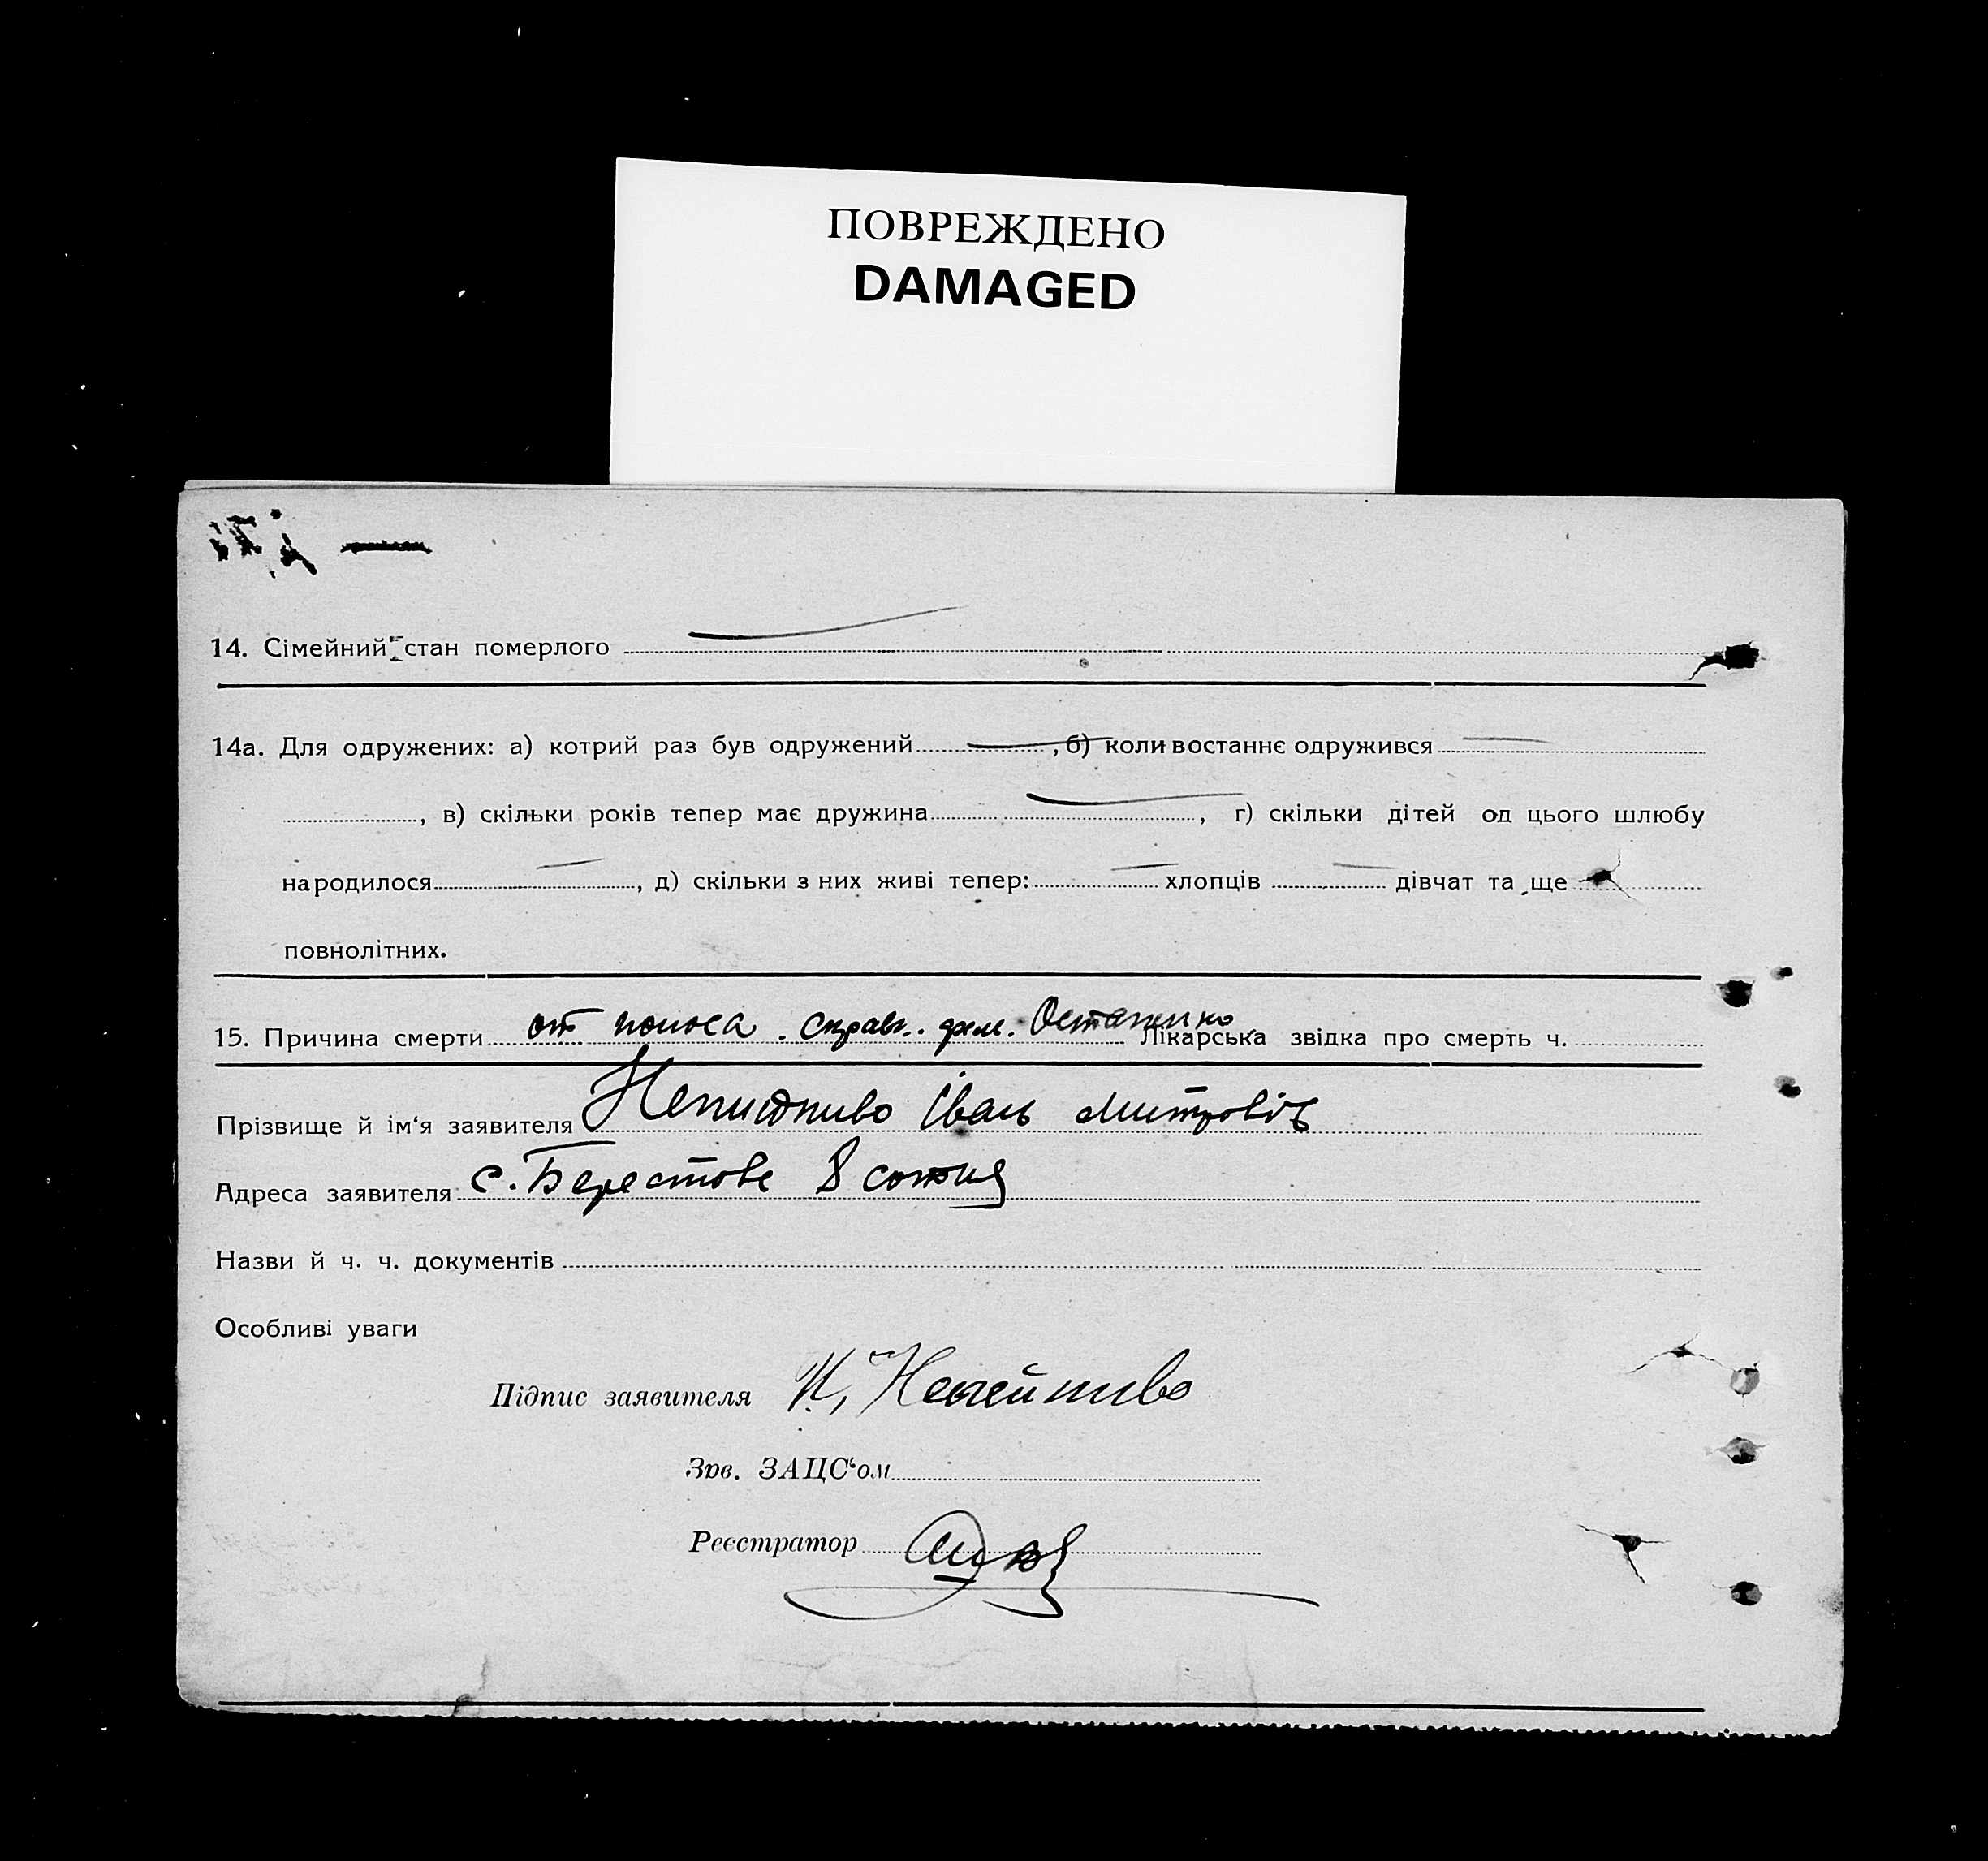 ПОВРЕЖДЕНО
DAMAGED
14. Сімейний стан померлого
14а. Для одружених: а) котрий раз був одружений , б) коли востаннє одружився
, в) скільки років тепер має дружина , г) скільки дітей од цього шлюбу
народилося , д) скільки з них живі тепер: хлопців дівчат та ще
повнолітних.
15. Причина смерти от поноса. Справк. фел. Остапенко Лікарська звідка про смерть ч.
Прізвище й ім'я заявителя Іван Митрович
Адреса заявителя с. Берестове 8 сотня
Назви й ч. ч. документів
Особливі уваги
Підпис заявителя
Зав. ЗАЦС'ом
Реєстратор